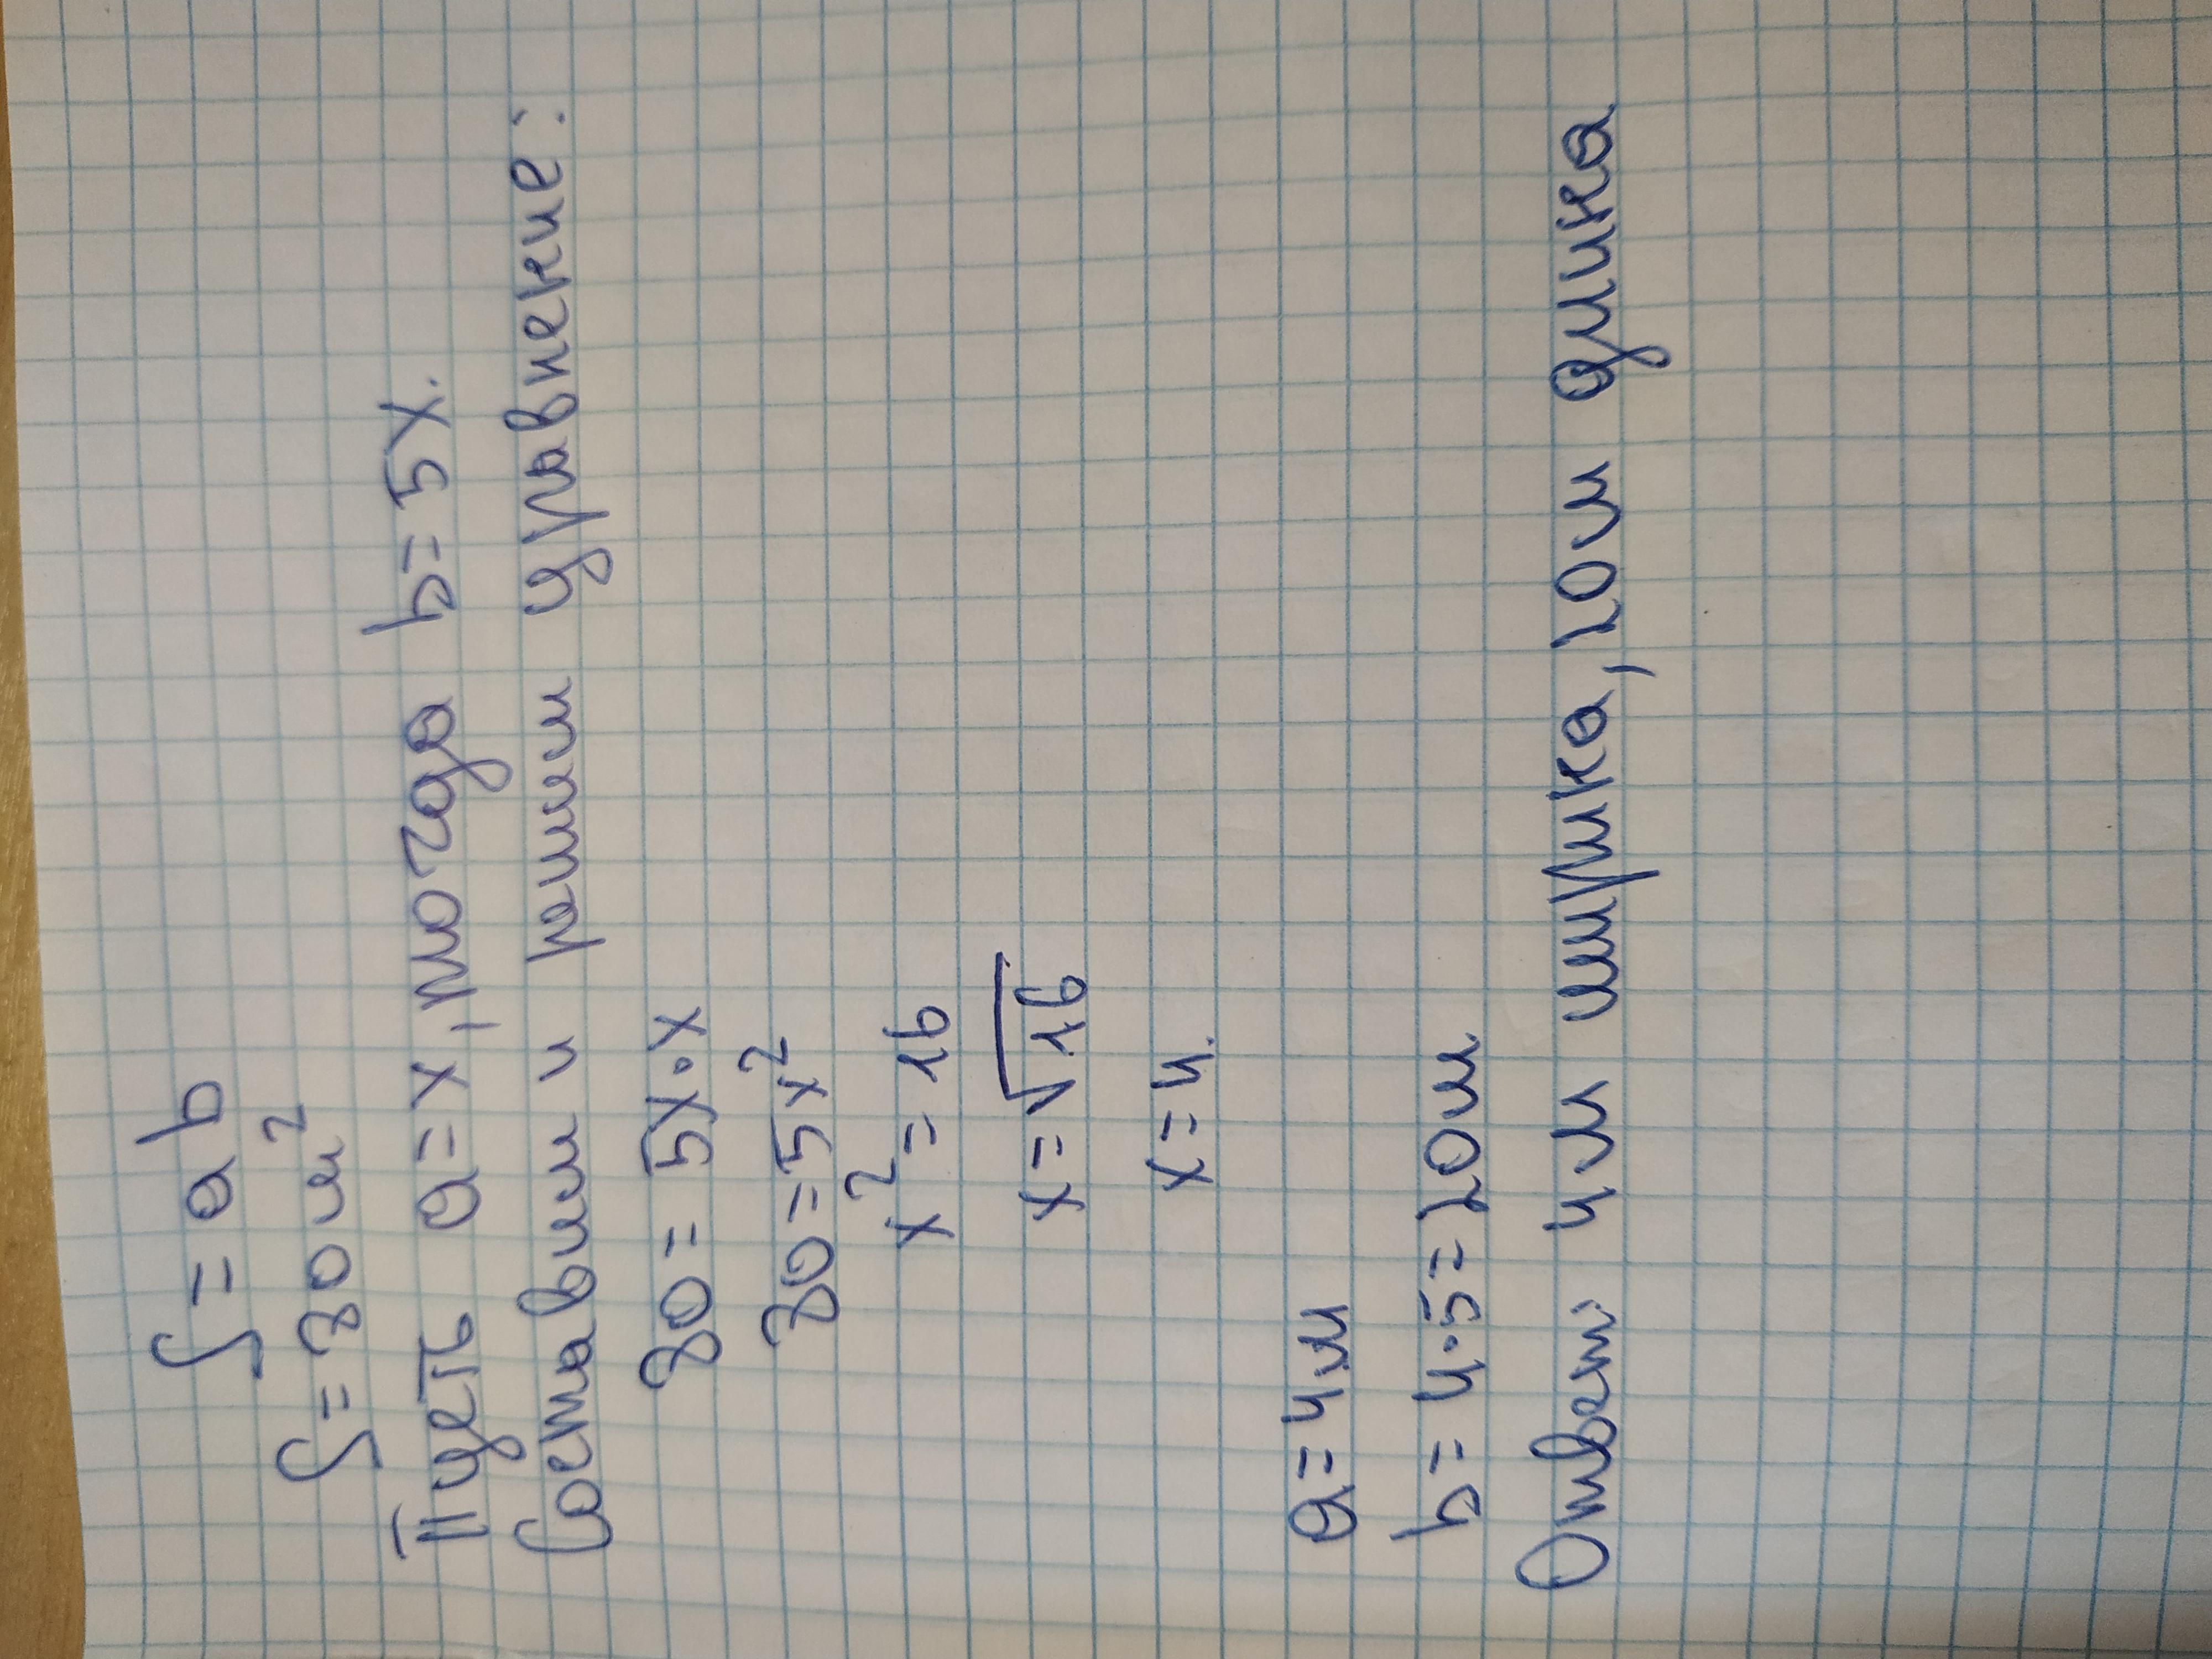 S = ab
S = 80 м²
Пусть a = x, тогда b = 5x.
Составим и решим уравнение:
80 = 5x·x
80 = 5x²
x² = 16
x = √16
x = 4.
a = 4м
b = 4·5 = 20м
Ответ: 4м ширина, 20м длина